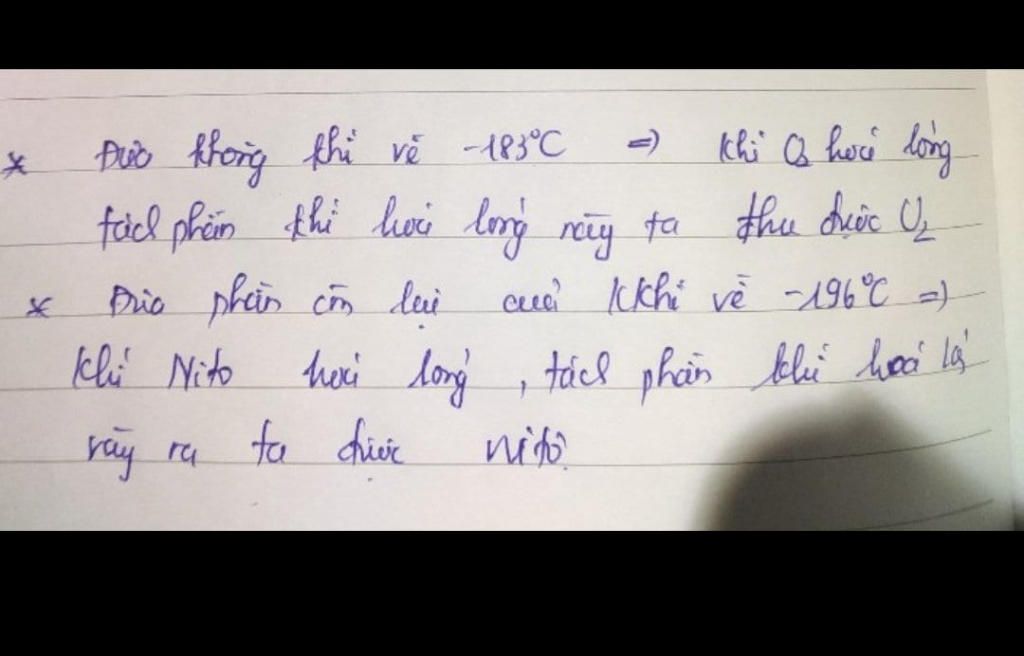 * Đưa không khí về -183°C => khí O₂ hoá lỏng
tách phần khí hoá lỏng này ta thu được O₂
* Đưa phần còn lại của KKhí về -196°C =>
khí Nito hoá lỏng, tách phần khí hoá lỏ
này ra ta được nitơ